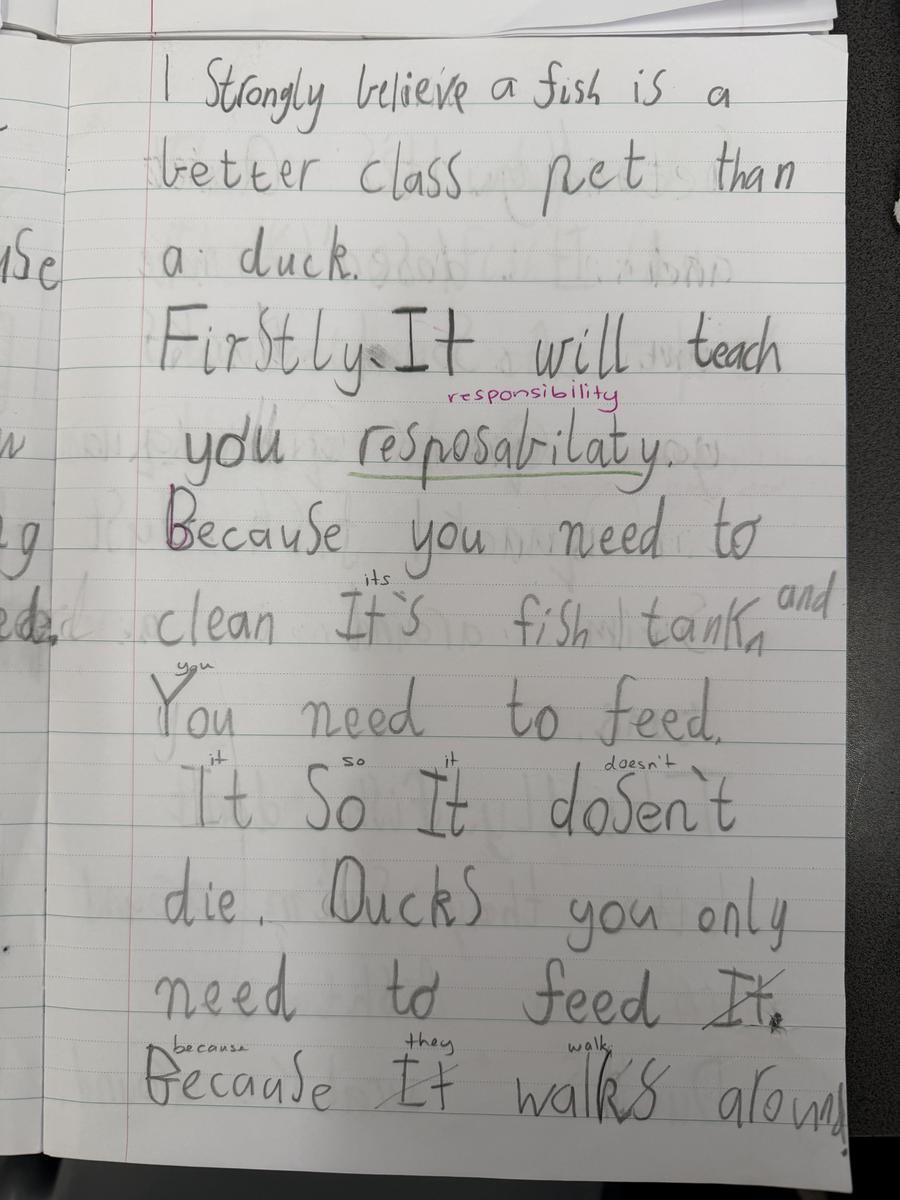 I Strongly believe a fish is a
better class pet than
a duck.
Firstly. It will teach
responsibility
you resposabilaty.
Because you need to
its
clean It's fish tank, and
you
You need to feed.
it so it doesn't
It So It dosen't
die. Ducks you only
need to feed It.
because they walk
Because It walks around
use
w
g
ed.